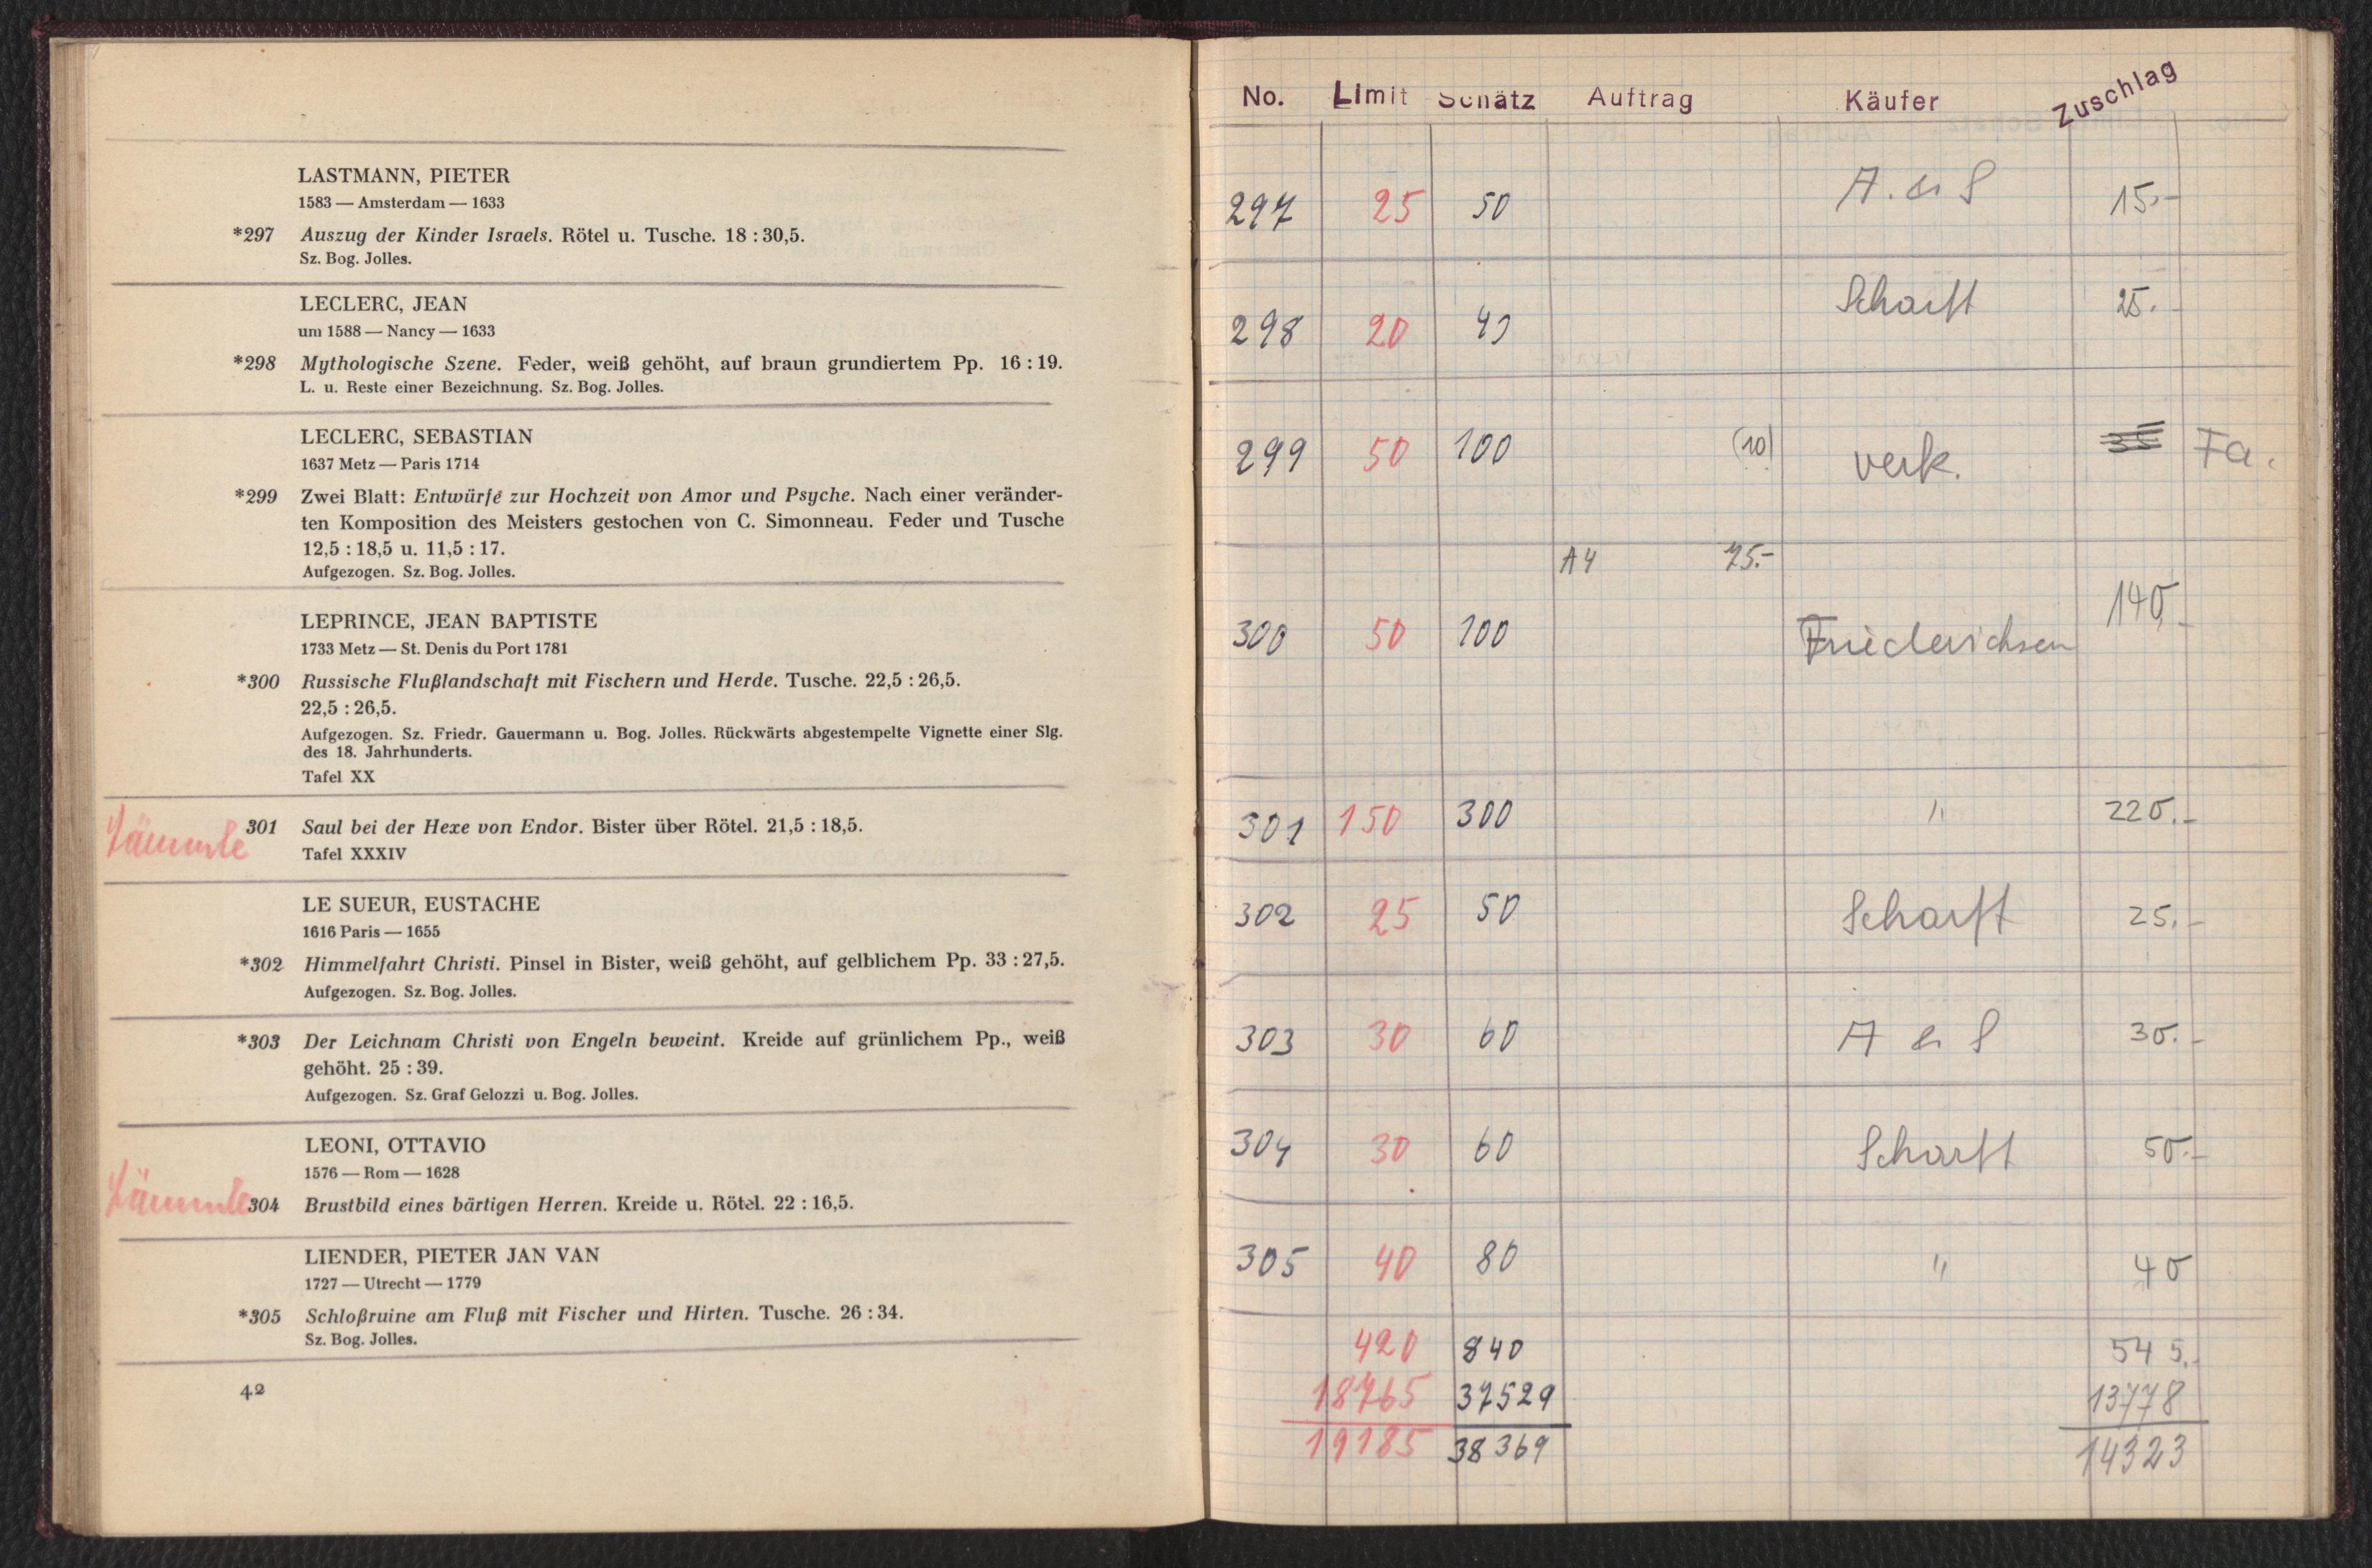 LASTMANN, PIETER
1583 — Amsterdam — 1633
*297 Auszug der Kinder Israels. Rötel u. Tusche. 18 : 30,5.
Sz. Bog. Jolles.
LECLERC, JEAN
um 1588 — Nancy — 1633
*298 Mythologische Szene. Feder, weiß gehöht, auf braun grundiertem Pp. 16 : 19.
L. u. Reste einer Bezeichnung. Sz. Bog. Jolles.
LECLERC, SEBASTIAN
1637 Metz — Paris 1714
*299 Zwei Blatt: Entwürfe zur Hochzeit von Amor und Psyche. Nach einer veränder-
ten Komposition des Meisters gestochen von C. Simonneau. Feder und Tusche
12,5 : 18,5 u. 11,5 : 17.
Aufgezogen. Sz. Bog. Jolles.
LEPRINCE, JEAN BAPTISTE
1733 Metz — St. Denis du Port 1781
*300 Russische Flußlandschaft mit Fischern und Herde. Tusche. 22,5 : 26,5.
22,5 : 26,5.
Aufgezogen. Sz. Friedr. Gauermann u. Bog. Jolles. Rückwärts abgestempelte Vignette einer Slg.
des 18. Jahrhunderts.
Tafel XX
Lämmle 301 Saul bei der Hexe von Endor. Bister über Rötel. 21,5 : 18,5.
Tafel XXXIV
LE SUEUR, EUSTACHE
1616 Paris — 1655
*302 Himmelfahrt Christi. Pinsel in Bister, weiß gehöht, auf gelblichem Pp. 33 : 27,5.
Aufgezogen. Sz. Bog. Jolles.
*303 Der Leichnam Christi von Engeln beweint. Kreide auf grünlichem Pp., weiß
gehöht. 25 : 39.
Aufgezogen. Sz. Graf Gelozzi u. Bog. Jolles.
LEONI, OTTAVIO
1576 — Rom — 1628
Lämmle 304 Brustbild eines bärtigen Herren. Kreide u. Rötel. 22 : 16,5.
LIENDER, PIETER JAN VAN
1727 — Utrecht — 1779
*305 Schloßruine am Fluß mit Fischer und Hirten. Tusche. 26 : 34.
Sz. Bog. Jolles.
42
No. Limit Schätz Auftrag Käufer Zuschlag
297 25 50 A. & S 15.-
298 20 40 Scharff 25.-
299 50 100 (10) verk. 35 Fa.
A4 75.-
300 50 100 Friederichsen 140.-
301 150 300 " 220.-
302 25 50 Scharff 25.-
303 30 60 A & S 30.-
304 30 60 Scharff 50.-
305 40 80 " 40
420 840 545.
18765 37529 13778
19185 38369 14323